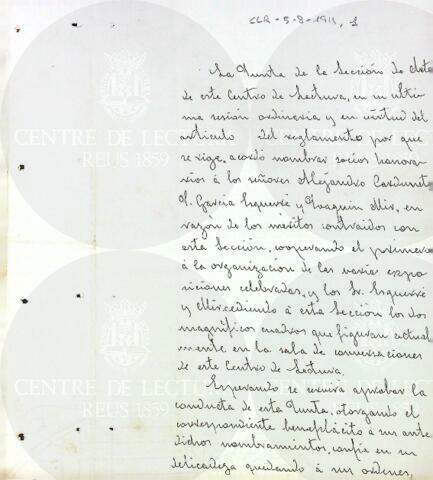 CLR-5-8-1911, 1
La Junta de la Sección de Arte
de este Centro de Lectura, en su ulti
ma sesion ordinaria y en virtud del
articulo del reglamento por que
se rige, acordó nombrar socios honora
rios á los señores Alejandro
García y Joaquin Mir, en
razon de los meritos contraidos con
esta Sección, cooperando el primero
á la organizacion de las varias expo
siciones celebradas, y los Sr.
y Mir, cediendo á esta Sección los dos
magnificos cuadros que figuran actual
mente en la sala de conversaciones
de este Centro de Lectura.
Esperando se servira aprobar la
conducta de esta Junta, otorgando el
correspondiente beneplácito á sus ante
dichos nombramientos, confia en su
delicadeza quedando á sus ordenes,
CENTRE DE LECTURA
REUS 1859